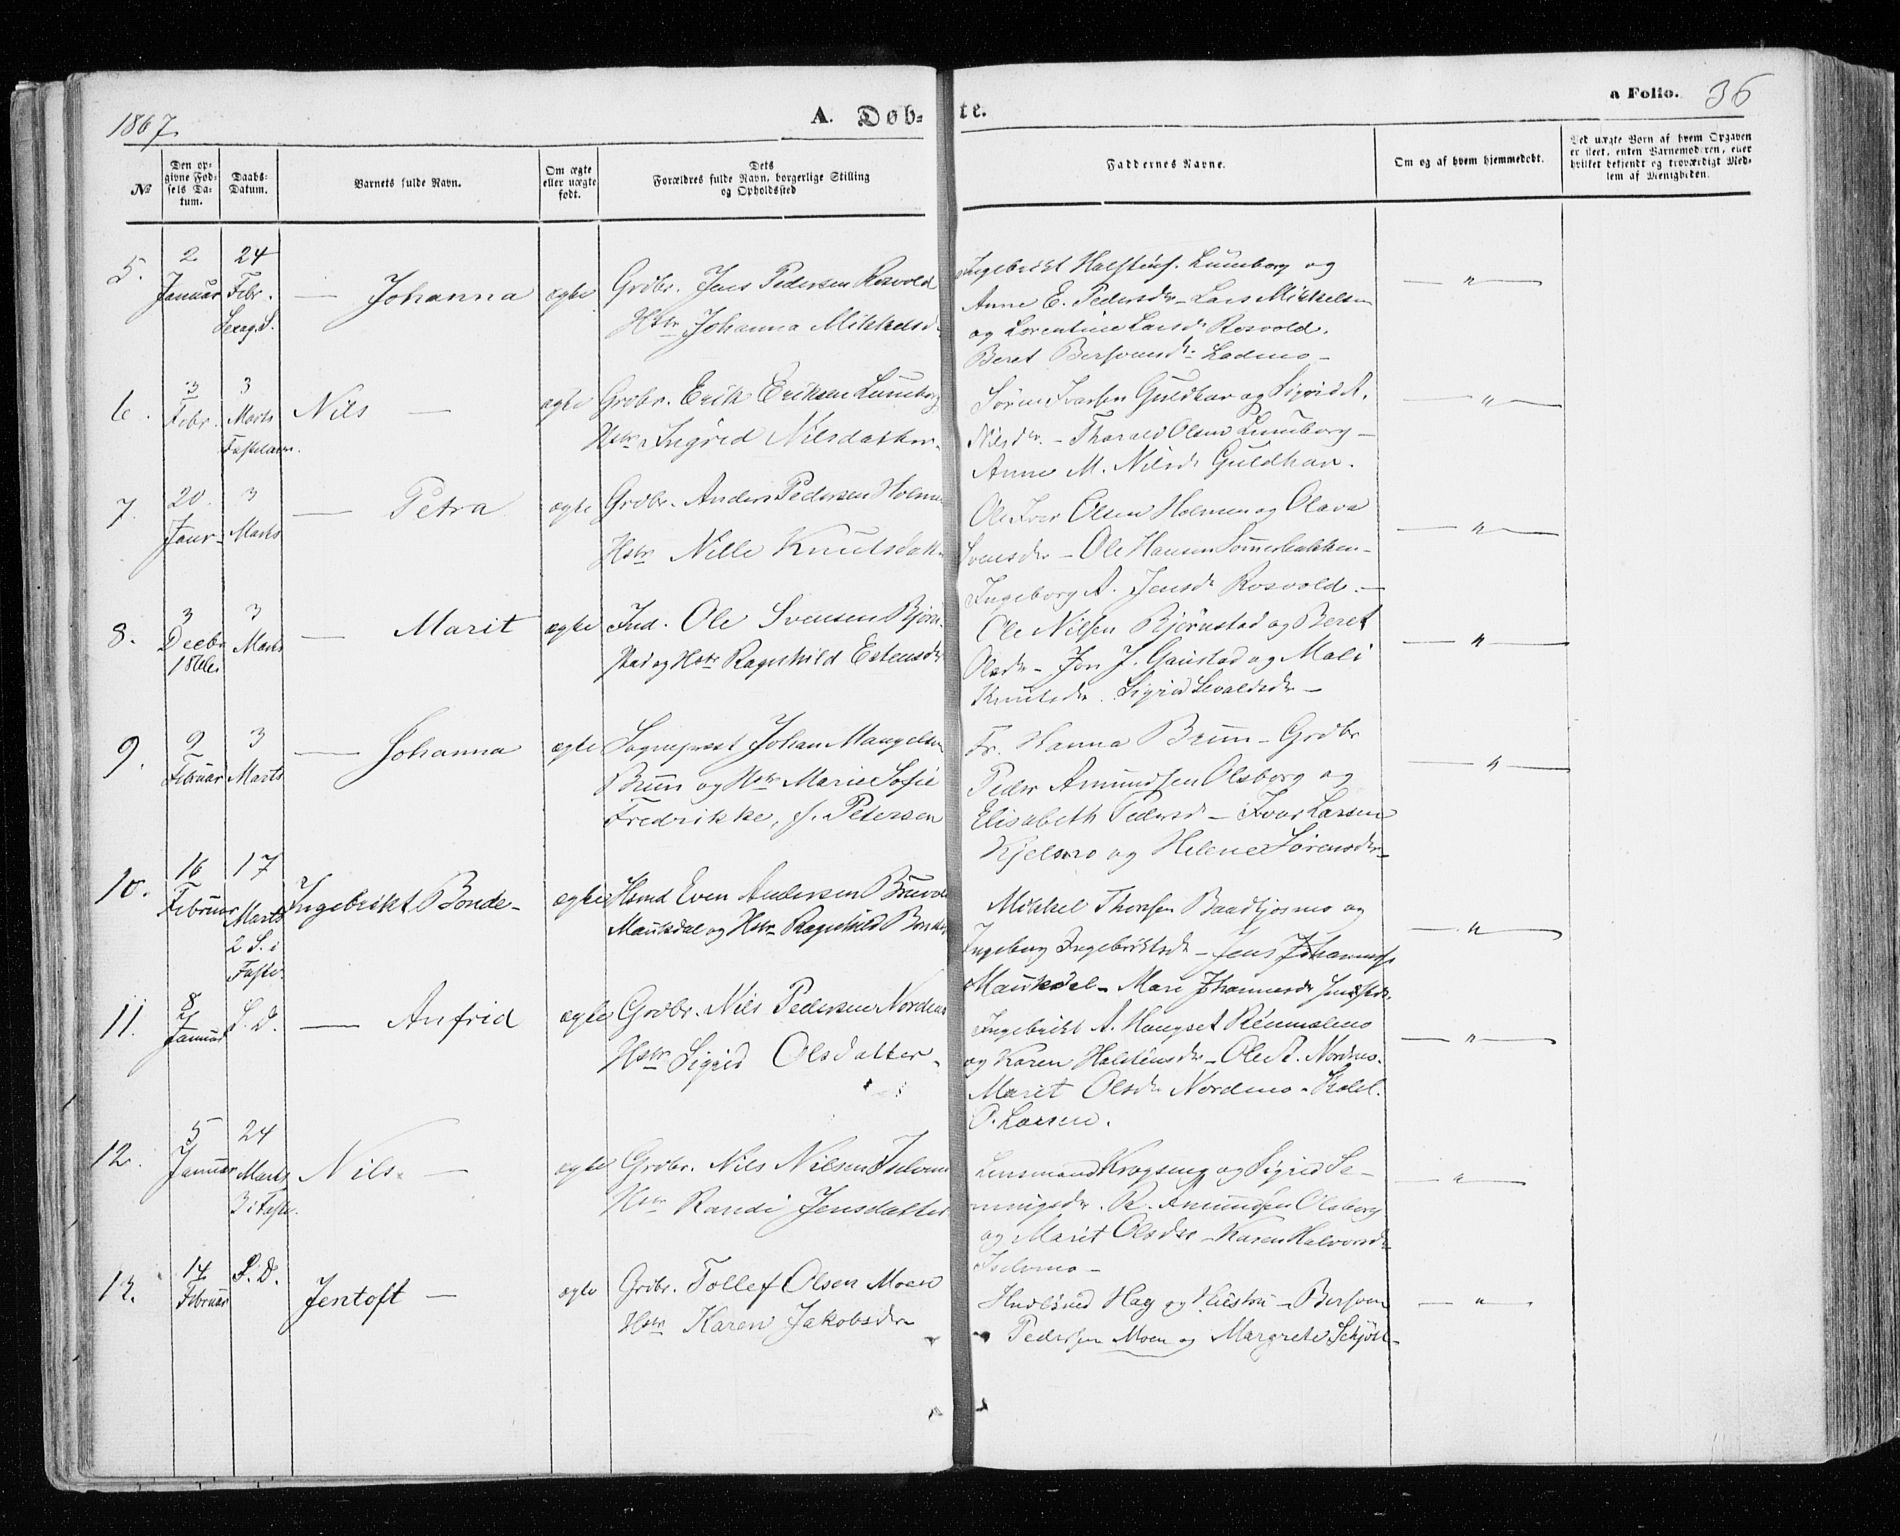 1867.
A. Døb-
te.
a Folio. 36
№
Den op-
givne Fød-
sels Da-
tum.
Daabs-
Datum.
Barnets fulde Navn.
Om ægte
eller uægte
født.
Dets
Forældres fulde Navn, borgerlige Stilling
og Opholdssted
Faddernes Navne.
Om og af hvem hjemmedøbt.
Ved uægte Børn af hvem Opgaven
er skeet, enten Barnemoderen, eller
hvilket bekjendt og troværdigt Med-
lem af Menigheden.
5.
2
Januar
24
Febr.
Sexag. S.
— Johanna
ægte
Grdbr. Jens Pedersen Rosvold
Hstr Johanna Mikkelsd.
Ingebrikt Halstens. Luneborg og
Anne E. Pedersdr — Lars Mikkelsen
og Lorentine Larsd. Rosvold.
Beret Bersvensdr. Ladmo —
— " —
6.
3
Febr.
3
Marts
Fastelavn.
Nils —
ægte
Grdbr. Erik Eriksen Luneborg
Hstr Ingrid Nilsdatter.
Søren Iversen Guldhav og Sigrid A.
Nilsdr. — Tharald Olsen Luneborg —
Anne M. Nilsd. Guldhav.
— " —
7.
20.
Janr.
3
Marts
— Petra
ægte
Grdbr. Anders Pedersen Holmen
Hstr Nille Knutsdatt.
Ole Iver Olsen Holmen og Olava
Svensdr — Ole Hansen Sommerbakken —
Ingeborg A. Jensd. Rosvold. —
— " —
8.
3
Decbr
1866.
3
Marts
— Marit
ægte
Ind. Ole Svensen Bjørn-
stad og Hstr Ragnhild Estensdr
Ole Nilsen Bjørnstad og Beret
Olsdr — Jon J. Gaustad og Mali
Knutsdr. Sigrid Sivaldsdr —
— " —
9.
9
Februar
3
Marts
— Johanna
ægte
Sogneprest Johan Mangelsen
Brun og Hstr Marie Sofie
Fredrikke, f. Petersen
Fr. Hanna Brun — Grdbr
Peder Amundsen Olsborg og
Elisabeth Pedersd — Ivar Larsen
Kjelmo og Helene Sørensdr —
— " —
10.
16
Februar
17
Marts
2 S. i
Faste.
Ingebrikt Bonde —
ægte
Hsmd Even Andersen Bruvold
Maukdal og Hstr Ragnhild Bonde
Mikkel Thomsen Baadtjosmo og
Ingeborg Ingebriktsdr — Jens Johannes.
Maukdal — Mari Johannesdr
— " —
11.
8
Januar
S. D.
— Anfrid
ægte
Grdbr. Nils Pedersen Nordmo
Hstr Sigrid Olsdatter.
Ingebrikt A. Haugset Renmælmo
og Karen Halstensdr — Ole P. Nordmo.
Marit Olsd. Nordmo —
P. Larsen.
— " —
12.
5
Januar
24
Marts
3 i Faste.
Nils. —
ægte
Grdbr. Nils Nilsen Iselvmo
Hstr Randi Jensdatter
Lensmand Krogseng og Sigrid Se-
mingsdr. P. Amundsen Olsborg
og Marit Olsdr — Karen Halvorsd.
Iselvmo —
— " —
13.
14
Februar
S. D.
Jentoft —
ægte
Grdbr. Tollef Olsen Moen
Hstr Karen Jakobsdr
Hag og Hustru — Bersven
Pedersen Moen og Margrete
— " —